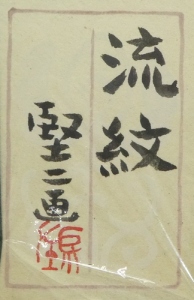 流紋
堅二画